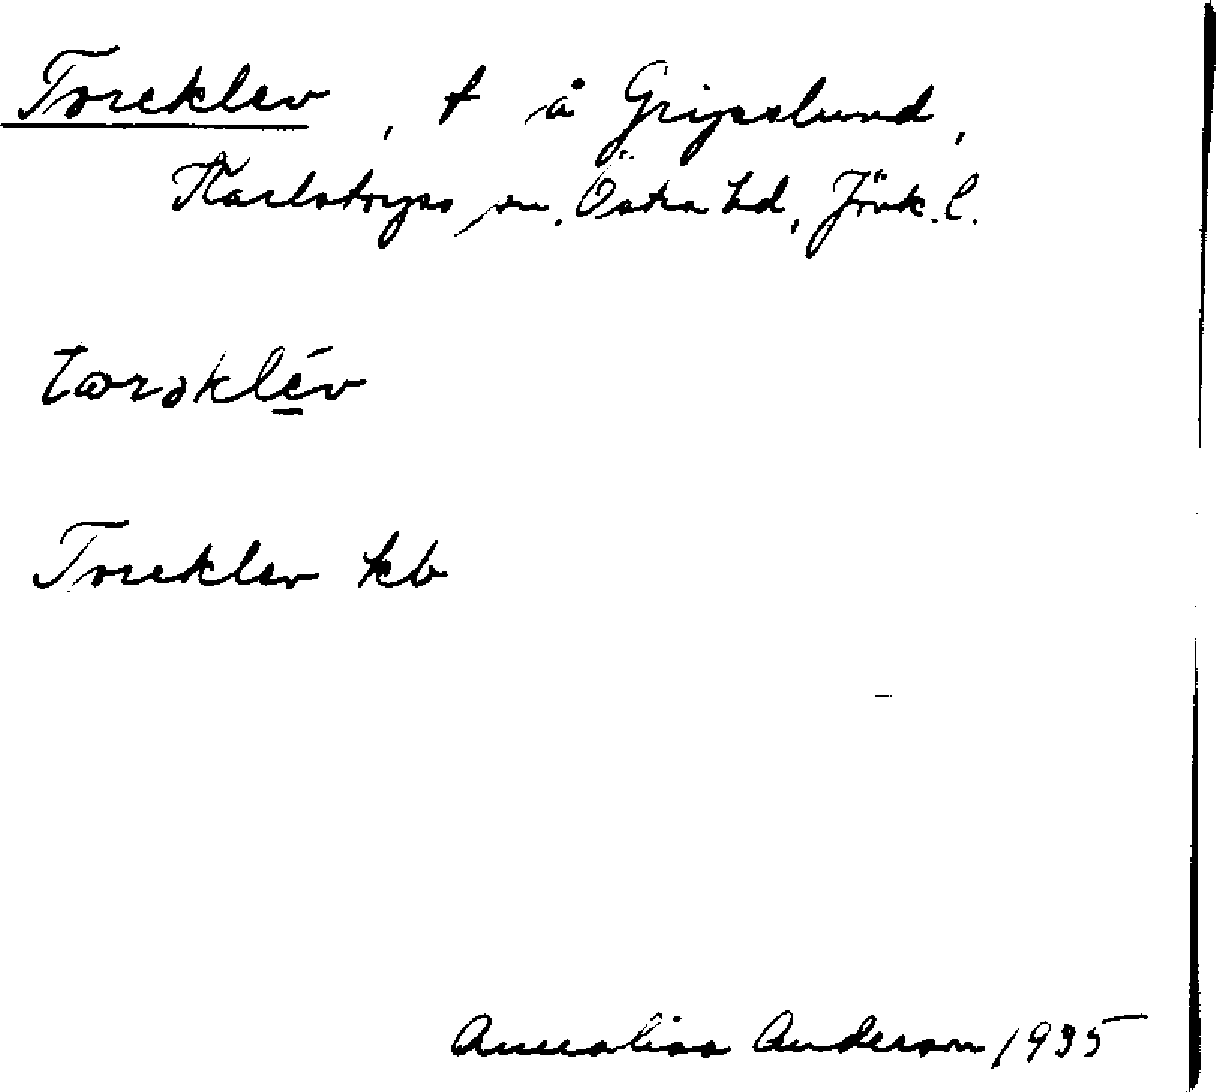 Toreklev, t å Gripslund,
Karlstorps sn. Östra hd, Jönk. l.
tωrəklév
Toreklev kb
Annalisa Anderson 1935